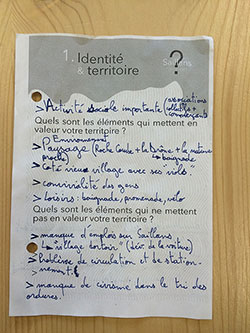 1. Identité
& territoire
Saillans
?
> Activité sociale importante (associations
collectifs +
commerçants
Quels sont les éléments qui mettent en
valeur votre territoire ?
Environnement
> Paysage (Roche Courbe + la Drôme + la nature
proche)
baignade
> Coté vieux village avec ses viols.
> convivialité des gens
> loisirs : baignade, promenade, vélo
Quels sont les éléments qui ne mettent
pas en valeur votre territoire ?
> manque d'emplois sur Saillans
> Le "village dortoir" (loin de la voiture)
> Problème de circulation et de station-
nement.
> manque de civisme dans le tri des
ordures.